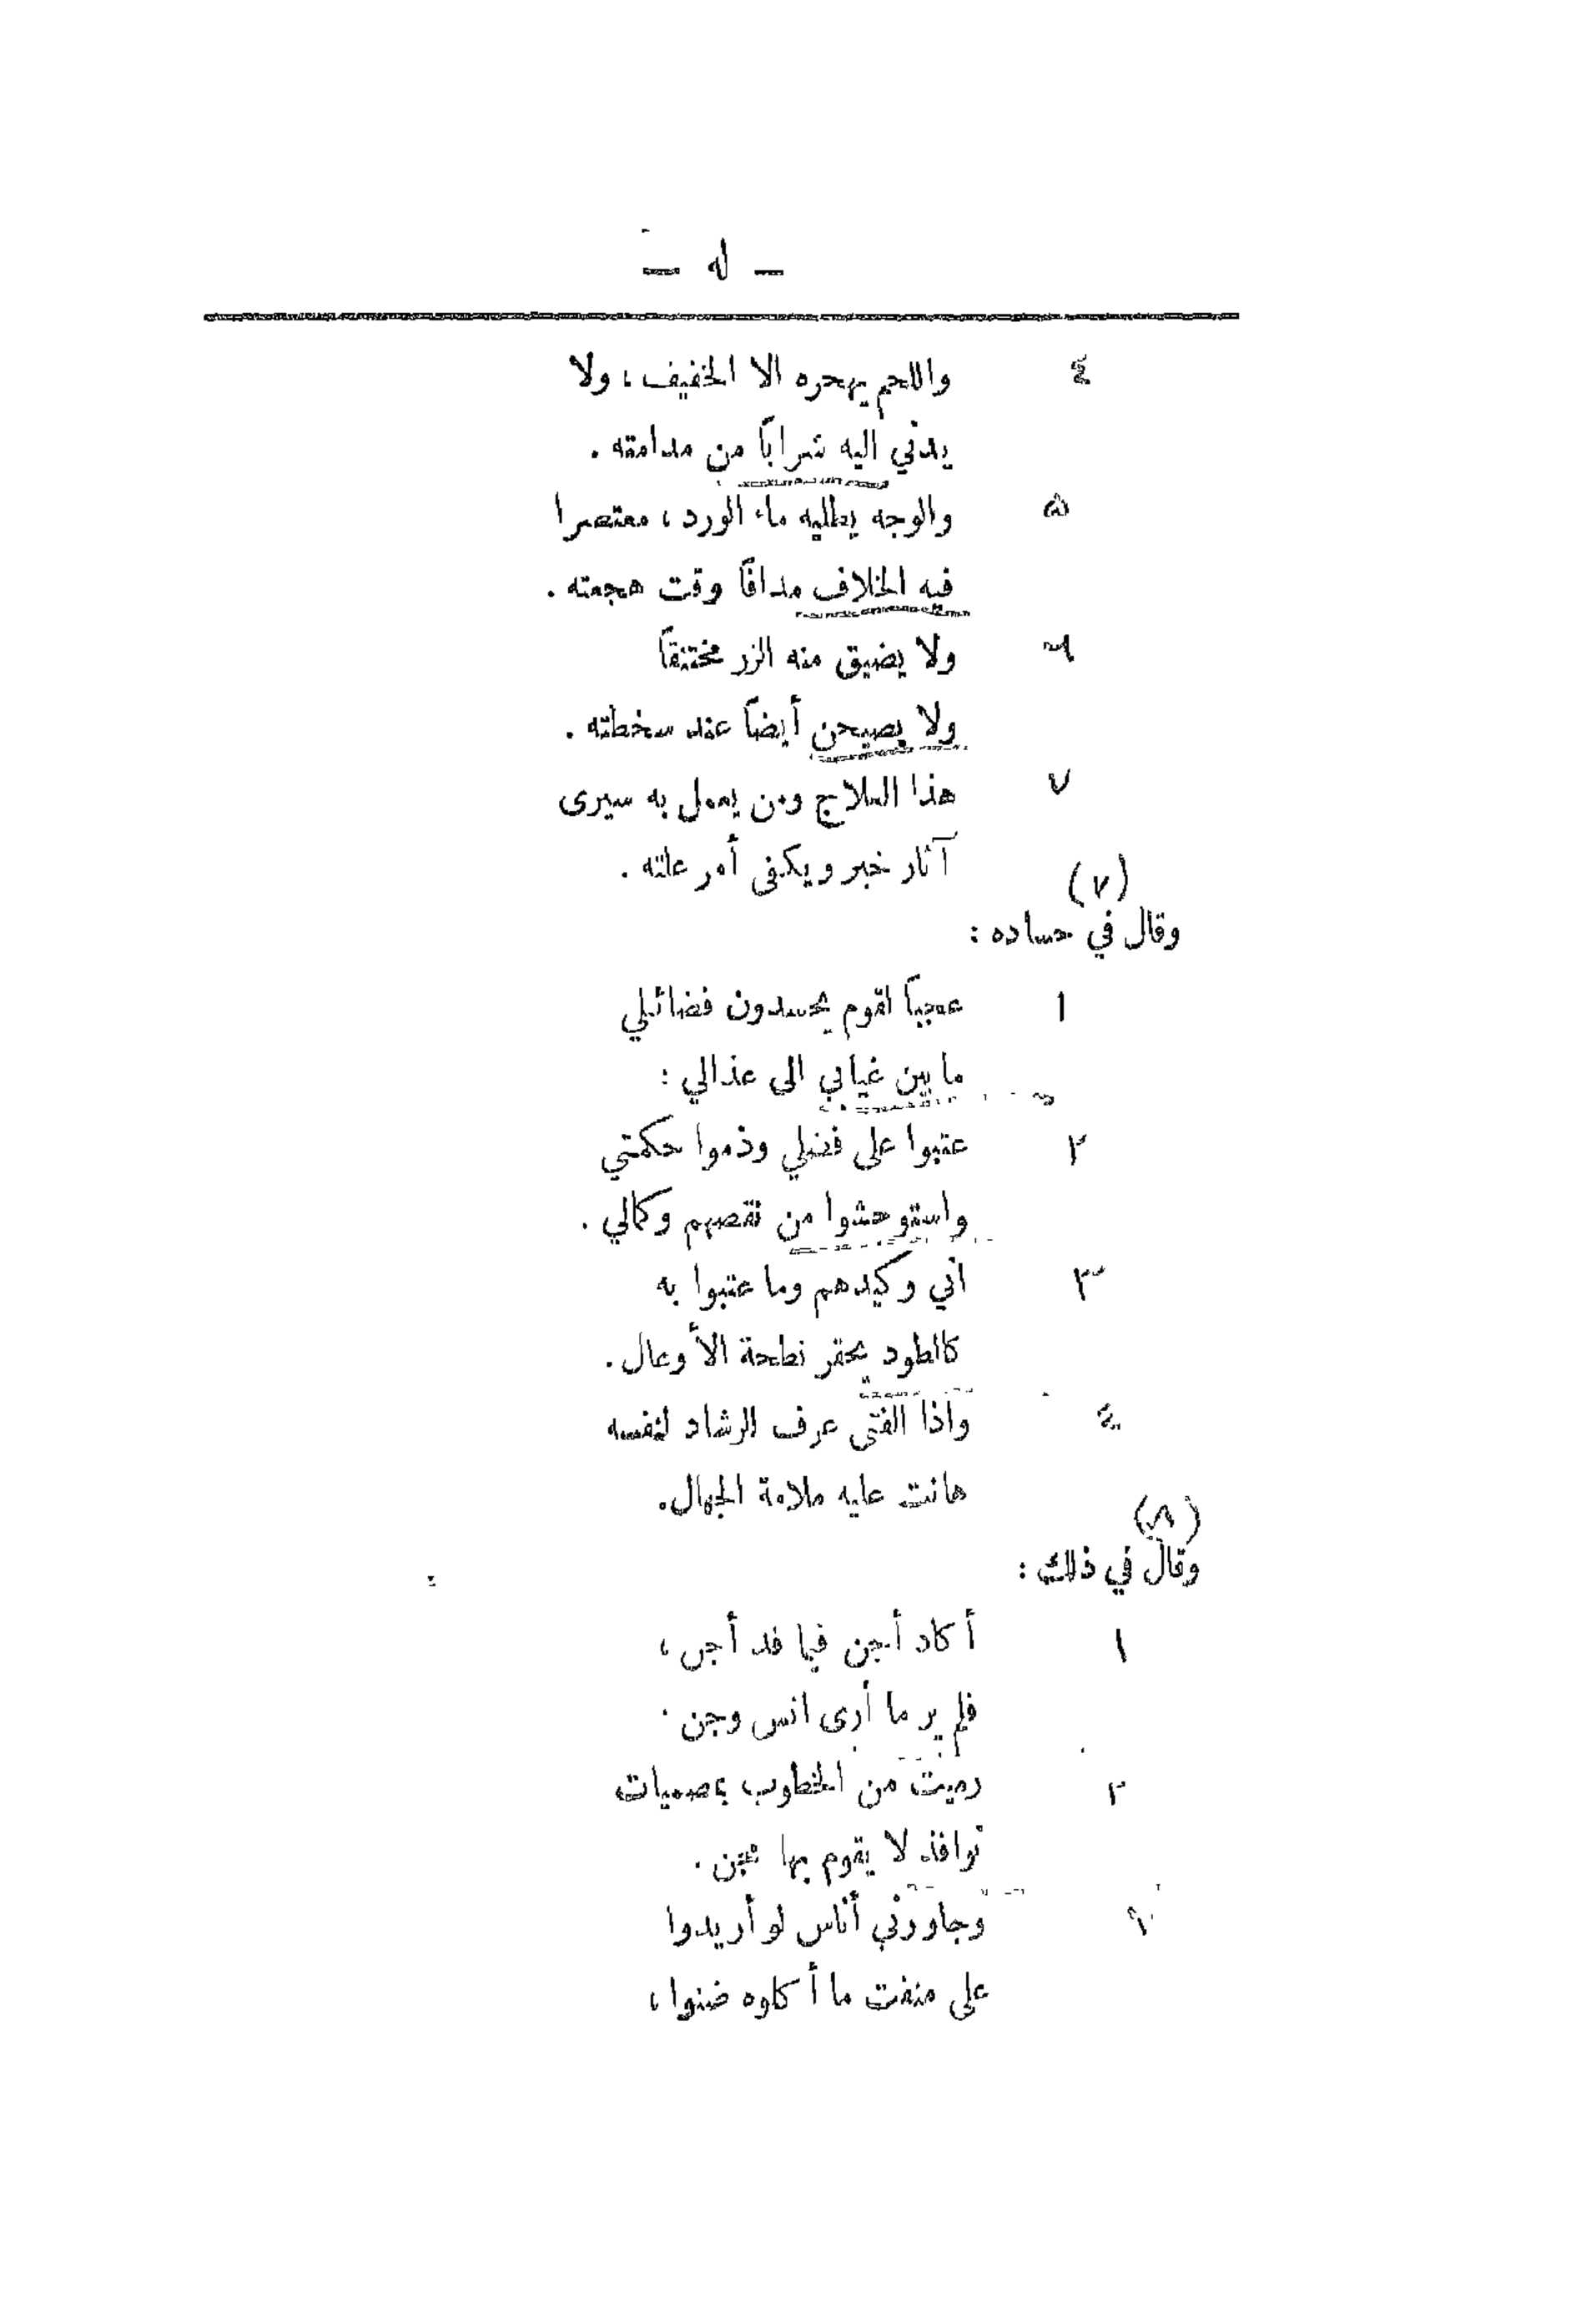 — له —
٤ واللحم يهجره الا الخفيف، ولا
يدني اليه شراباً من مدامته.
٥ والوجه يطليه ماء الورد، معتصرا
فيه الخلاف مدافاً وقت هجمته.
٦ ولا يضيق منه الزر مختنقاً
ولا يصيحن أيضاً عند سخطته.
٧ هذا العلاج ومن يعمل به سيرى
آثار خير ويكفى أمر علته.
(٧)
وقال في حساده:
١ عجباً لقوم يحسدون فضائلي
ما بين غيابي الى عذالي:
٢ عتبوا على فضلي وذموا حكمتي
واستوحشوا من نقصهم وكمالي.
٣ اني وكيدهم وما عتبوا به
كالطود يحقر نطحة الأوعال.
٤ واذا الفتى عرف الرشاد لنفسه
هانت عليه ملامة الجهال.
(٨)
وقال في ذلك:
١ أكاد أجن فيما قد أجن،
فلم ير ما أرى انس وجن.
٢ رميت من الخطوب بمصميات
نوافذ لا يقوم بها مجن.
وجاورني أناس لو أريدوا
على منفت ما أكلوه ضنوا،